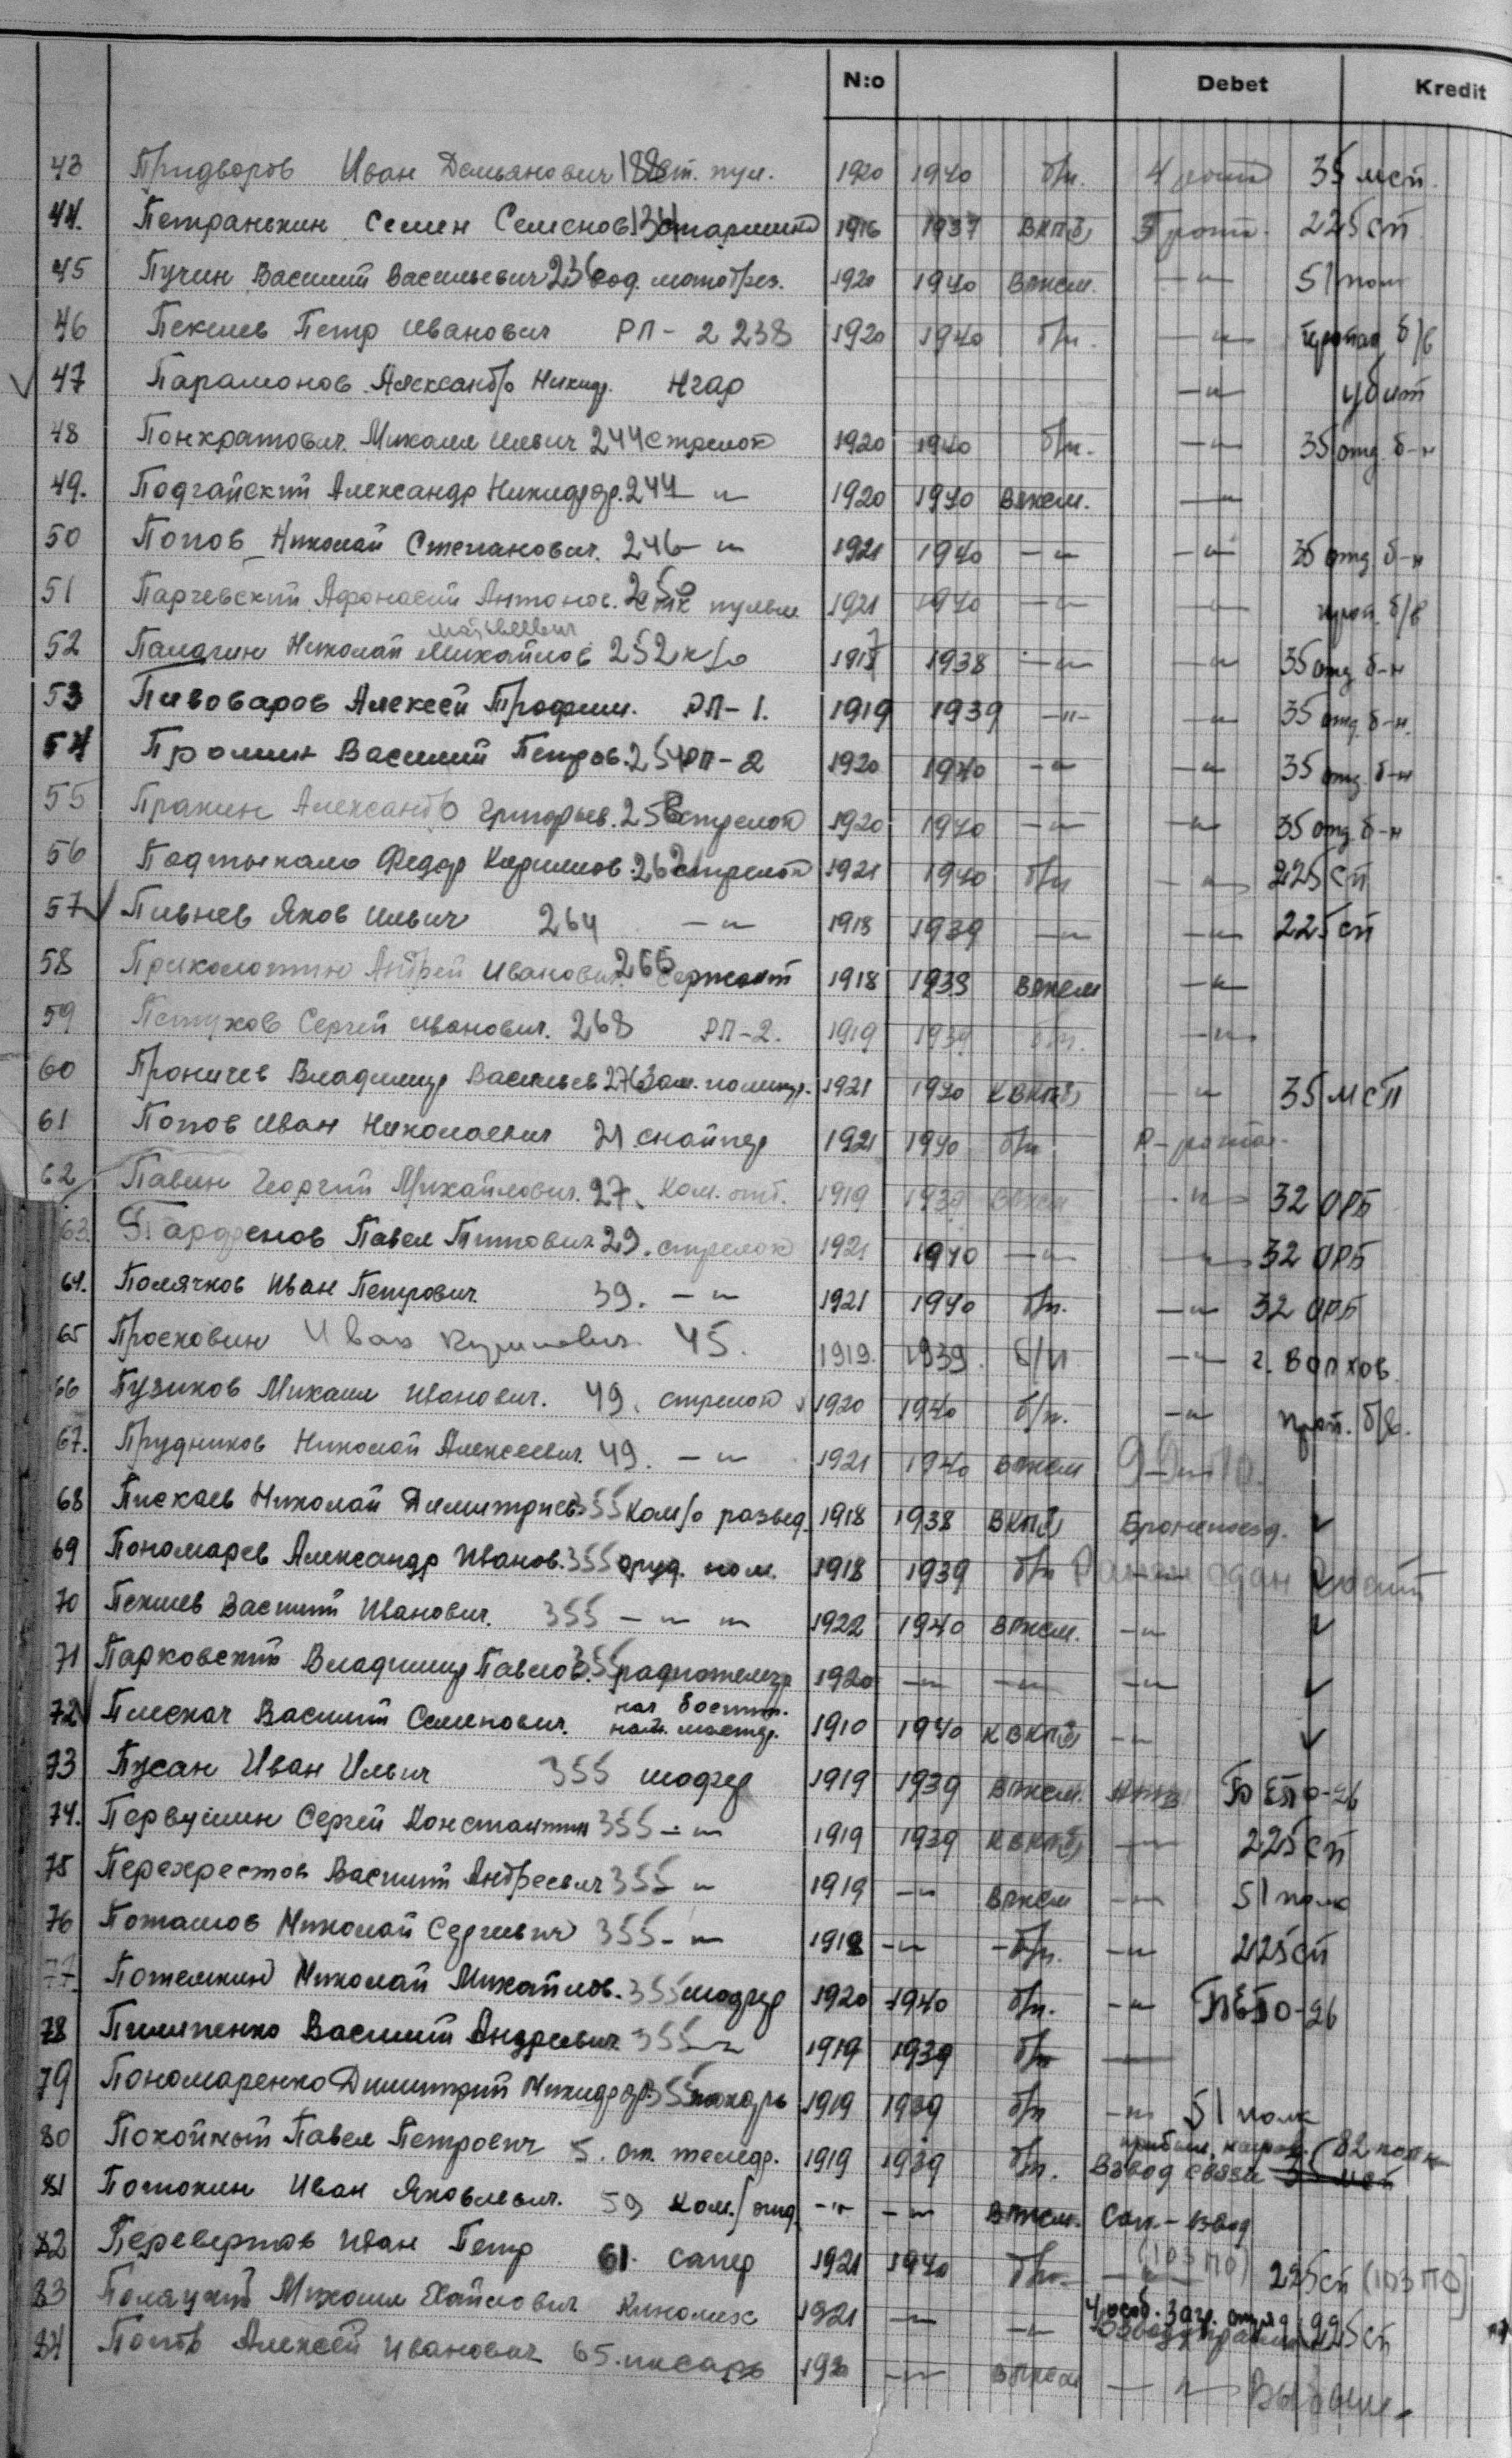 N:o Debet Kredit
43 Придворов Иван Демьянович 188 ст. пул. 1920 1940 б/п. 4 рота 35 мсп.
44. Петранькин Семен Семенов. 134 старшина 1916 1937 ВКП(б) 5 рота. 225 сп
45 Пучин Василий Васильевич 236 1920 1940 Влксм. —„— 51 полк
46 Пекшев Петр Иванович РП-2 238 1920 1940 б/п. —„— пропал б/в
47 Парамонов Александр Никид. —„— убит
48 Понкратович Михаил Ильич 244 стрелок 1920 1940 б/п. —„— 35 отд. б-н
49. Подгайский Александр Никифор. 244 —„— 1920 1940 Влксм. —„—
50 Попов Николай Степанович. 246 —„— 1921 1940 —„— —„— 35 отд б-н
51 Парчевский Афонасий Антонов. 250 пулем 1921 1940 —„— —„— проп. б/в
52 Палагин Николай Михайлов 252 к/о 1938 —„— —„— 35 отд б-н
53 Пивоваров Алексей Трофим. РП-1. 1919 1939 —„— —„— 35 отд. б-н.
54 Промин Василий Петров. 254 РП-2 1920 1940 —„— —„— 35 отд. б-н
55 Пракин Александр Григорьев. 258 стрелок 1920 1940 —„— —„— 35 отд б-н
56 Подтыкало Федор Кирилов. 262 стрелок 1921 1940 б/п —„— 225 сп
57 Пивнев Яков Ильич 264 —„— 1918 1939 —„— —„— 225 сп
58 Приколотию Андрей Иванович. 266 сержант 1918 1939 Влксм —„—
59 Петухов Сергей Иванович. 268 РП-2. 1919 1939 б/п. —„—
60 Проничев Владимир Васильев 276 зам. политр. 1921 1940 КВКП(б) —„— 35 мсп
61 Попов Иван Николаевич 21 снайпер 1921 1940 б/п Р-рота.
62 Павин Георгий Михайлович. 27. Ком. отд. 1919 1939 Влксм —„— 32 ОРБ
63. Парфенов Павел Титович 29. стрелок 1921 1940 —„— —„— 32 ОРБ
64. Полячков Иван Петрович. 39. —„— 1921 1940 б/п. —„— 32 ОРБ
65 Просковин Иван 45. 1919. 1939. б/п —„— г. Волхов.
66 Пузиков Михаил Иванович. 49. стрелок 1920 1940 б/п. —„— проп. б/в.
67. Прудников Николай Алексеевич. 49. —„— 1921 1940 Влксм
68 Пискаев Николай Димитриев. 355 Ком/о развед. 1918 1938 ВКП(б) Бронепоезд.
69 Пономарев Александр Иванов. 355 оруд. ном. 1918 1939 б/п
70 Пекшев Василий Иванович. 355 —„— —„— 1922 1940 Влксм. —„—
71 Парковский Владимир Павлов. 355 радиотелегр 1920 —„— —„— —„—
72 Плескач Василий Семенович. нач. мастер. 1910 1940 КВКП(б) —„—
73 Пусан Иван Ильич 355 шофер 1919 1939 Влксм. БЕПО-26
74. Первушин Сергей Константин 355 —„— 1919 1939 КВКП(б) —„— 225 сп
75 Перехрестов Василий Андреевич 355 —„— 1919 —„— Влксм —„— 51 полк
76 Поташов Николай Сергеевич 355 —„— 1918 —„— б/п. —„— 225 сп
77. Потемкин Николай Михайлов. 355 шофер 1920 1940 б/п. —„— БЕПО-26
78 Пилипенко Василий Андреевич. 355 —„— 1919 1939 б/п —„—
79 Пономаренко Димитрий Никифор. 355 токарь 1919 1939 б/п —„— 51 полк
80 Покойный Павел Петрович 5. ст. телеф. 1919 1939 б/п. Взвод связи 82 полк
81 Потокин Иван Яковлевич. 59 Ком./отд. —„— —„— Влксм. Сап.-взвод
82 Перевертов Иван Петр 61. сапер 1921 1940 б/п. —„— (103 ПО) 225 сп (103 ПО)
83 Поляцкий Михаил Хаимович Киномех 1921 —„— —„— 4 особ. заг. отряд 225 сп
84 Попов Алексей Иванович 65. писарь 1920 —„— Влксм —„—